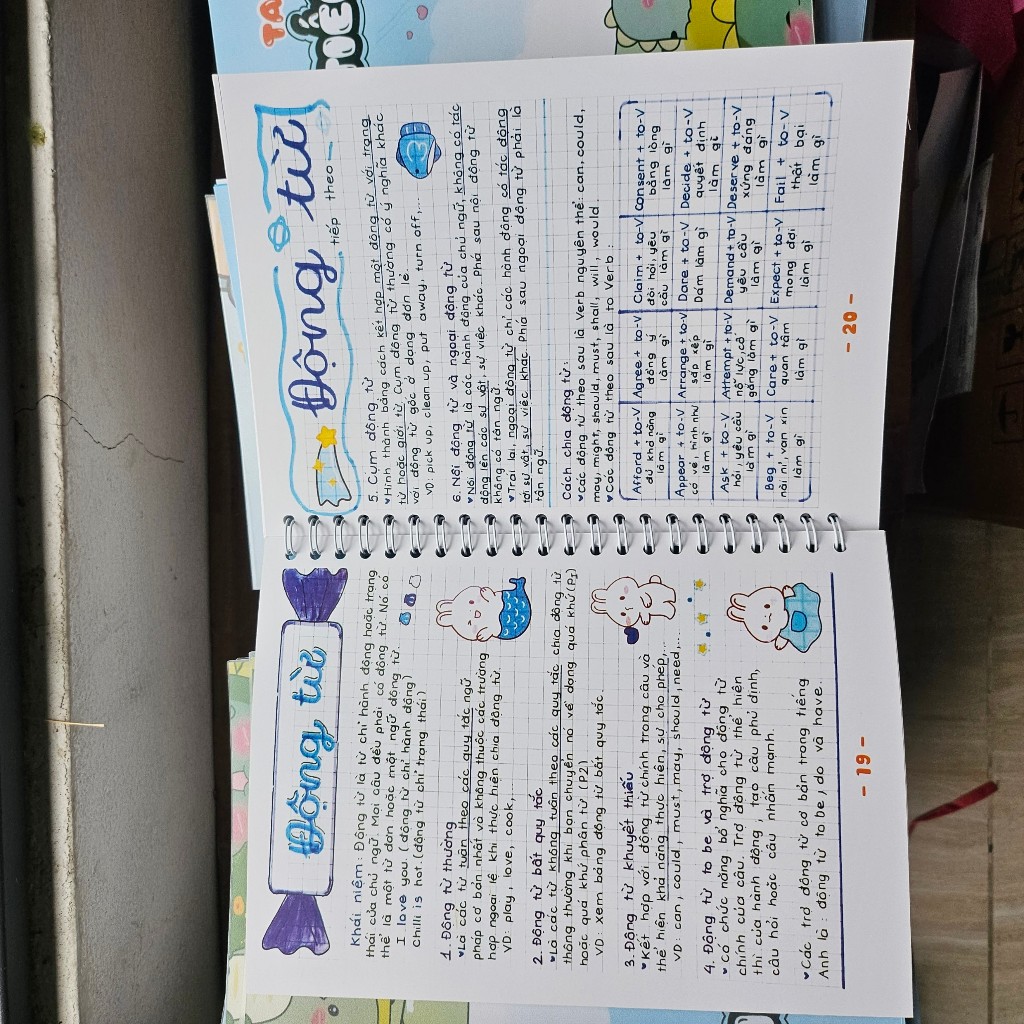 Động từ
Khái niệm: Động từ là từ chỉ hành động hoặc trạng
thái của chủ ngữ. Mọi câu đều phải có động từ. Nó có
thể là một từ đơn hoặc một ngữ động từ.
I love you. (động từ chỉ hành động)
Chilli is hot. (động từ chỉ trạng thái)
1. Động từ thường
♥Là các từ tuân theo các quy tắc ngữ
pháp cơ bản nhất và không thuộc các trường
hợp ngoại lệ khi thực hiện chia động từ.
VD: play, love, cook,...
2. Động từ bất quy tắc
♥Là các từ không tuân theo các quy tắc chia động từ
thông thường khi bạn chuyển nó về dạng quá khứ (P1)
hoặc quá khứ phân từ (P2)
VD: xem bảng động từ bất quy tắc.
3. Động từ khuyết thiếu
♥Kết hợp với động từ chính trong câu và
thể hiện khả năng thực hiện, sự cho phép,...
VD: can, could, must, may, should, need,...
4. Động từ to be và trợ động từ
♥Có chức năng bổ nghĩa cho động từ
chính của câu. Trợ động từ thể hiện
thì của hành động, tạo câu phủ định,
câu hỏi hoặc câu nhấn mạnh.
♥Các trợ động từ cơ bản trong tiếng
Anh là: động từ to be, do và have.
- 19 -
Động từ
tiếp theo
5. Cụm động từ
♥Hình thành bằng cách kết hợp một động từ với trạng
từ hoặc giới từ. Cụm động từ thường có ý nghĩa khác
với động từ gốc ở dạng đơn lẻ.
VD: pick up, clean up, put away, turn off,...
6. Nội động từ và ngoại động từ
♥Nội động từ là các hành động của chủ ngữ, không có tác
động lên các sự vật, sự việc khác. Phía sau nội động từ
không có tân ngữ.
♥Trái lại, ngoại động từ chỉ các hành động có tác động
tới sự vật, sự việc khác. Phía sau ngoại động từ phải là
tân ngữ.
Cách chia động từ:
♥Các động từ theo sau là Verb nguyên thể: can, could,
may, might, should, must, shall, will, would.
♥Các động từ theo sau là to Verb:
Afford + to-V Agree + to-V Claim + to-V Consent + to-V
đủ khả năng đồng ý đòi hỏi, yêu bằng lòng
làm gì làm gì cầu làm gì làm gì
Appear + to-V Arrange + to-V Dare + to-V Decide + to-V
có vẻ, hình như sắp xếp Dám làm gì quyết định
làm gì làm gì làm gì
Ask + to-V Attempt + to-V Demand + to-V Deserve + to-V
hỏi, yêu cầu nỗ lực, cố yêu cầu xứng đáng
làm gì gắng làm gì làm gì làm gì
Beg + to-V Care + to-V Expect + to-V Fail + to-V
nài nỉ, van xin quan tâm mong đợi thất bại
làm gì làm gì làm gì làm gì
- 20 -